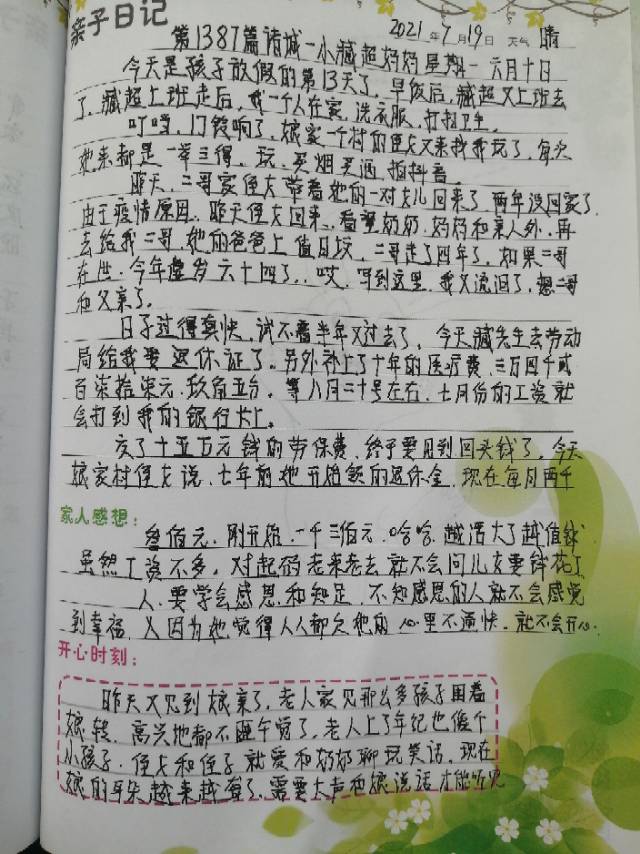 亲子日记
2021年7月19日 天气 晴
第1387篇诸城一小臧超妈妈星期一六月十日
今天是孩子放假的第13天了,早饭后,臧超又上班去
了,臧超上班走后,我一个人在家,洗衣服,打扫卫生。
叮当,门铃响了,娘家一个村的侄女又来找我玩了,每次
她来都是一举三得,玩、买烟买酒,拍抖音。
昨天,二哥家侄女带着她的一对女儿回来了,两年没回家了,
由于疫情原因,昨天侄女回来,看望奶奶、妈妈和亲人外,再
去给我二哥,她的爸爸上值日坟,二哥走了四年了,如果二哥
在世,今年虚岁六十四了,哎,写到这里,我又流泪了,想二哥
和父亲了。
日子过得真快,试不着半年又过去了,今天臧先生去劳动
局给我要退休证了。另外补上了十年的医疗费,三万四千贰
百柒拾柒元,玖角五分,等八月二十号左右,七月份的工资就
会打到我的银行卡上。
交了十五万元钱的劳保费,终于要见到回头钱了,今天
娘家村侄女说,七年前她开始领的退休金,现在每月两千
家人感想:
叁佰元,刚开始,一千三佰元,哈哈,越活大了越值钱,
虽然工资不多,对起码老来老去就不会问儿女要钱花了,
人,要学会感恩和知足,不知感恩的人就不会感觉
到幸福,又因为她觉得人人都欠她的,心里不通快。就不会开心.
开心时刻:
昨天又见到娘亲了,老人家见那么多孩子围着
娘转,高兴地都不睡午觉了,老人上了年纪也像个
小孩子,侄女和侄子就爱和奶奶聊玩笑话,现在
娘的耳朵越来越聋了,需要大声和娘说话才能听见